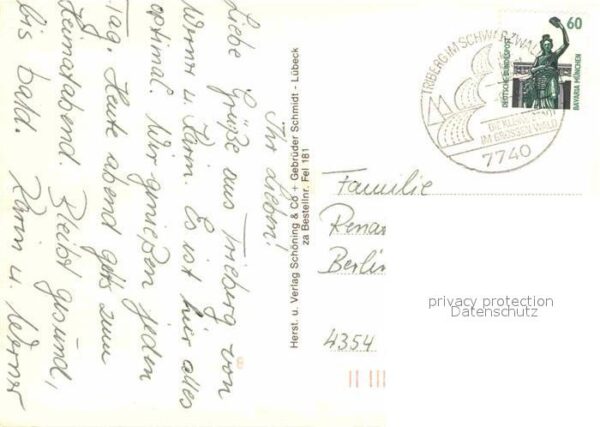 Ihr Lieben!
Liebe Grüße aus Triberg von
Werner u. Karin. Es ist hier alles
optimal. Wir genießen jeden
Tag. Heute abend gehts zum
Heimatabend. Bleibt gesund,
bis bald. Karin u. Werner
Herst. u. Verlag Schöning & Co + Gebrüder Schmidt - Lübeck
za Bestellnr. Fel 181
TRIBERG IM SCHWARZWALD
IM GROSSEN WALD
7740
60
DEUTSCHE BUNDESPOST
BAVARIA MÜNCHEN
Familie
Renar
Berlin
4354
privacy protection
Datenschutz